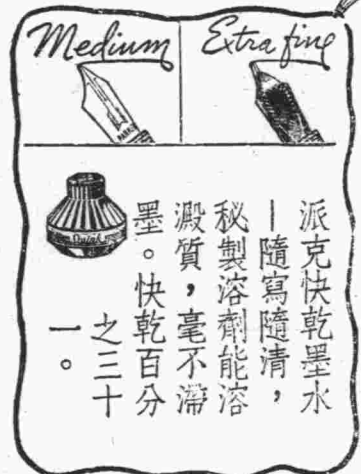 Medium
Extra fine
派克快乾墨水
—隨寫隨清，
秘製溶劑能溶
澱質，毫不滯
墨。快乾百分
之三十
一。
PARKER
Quink